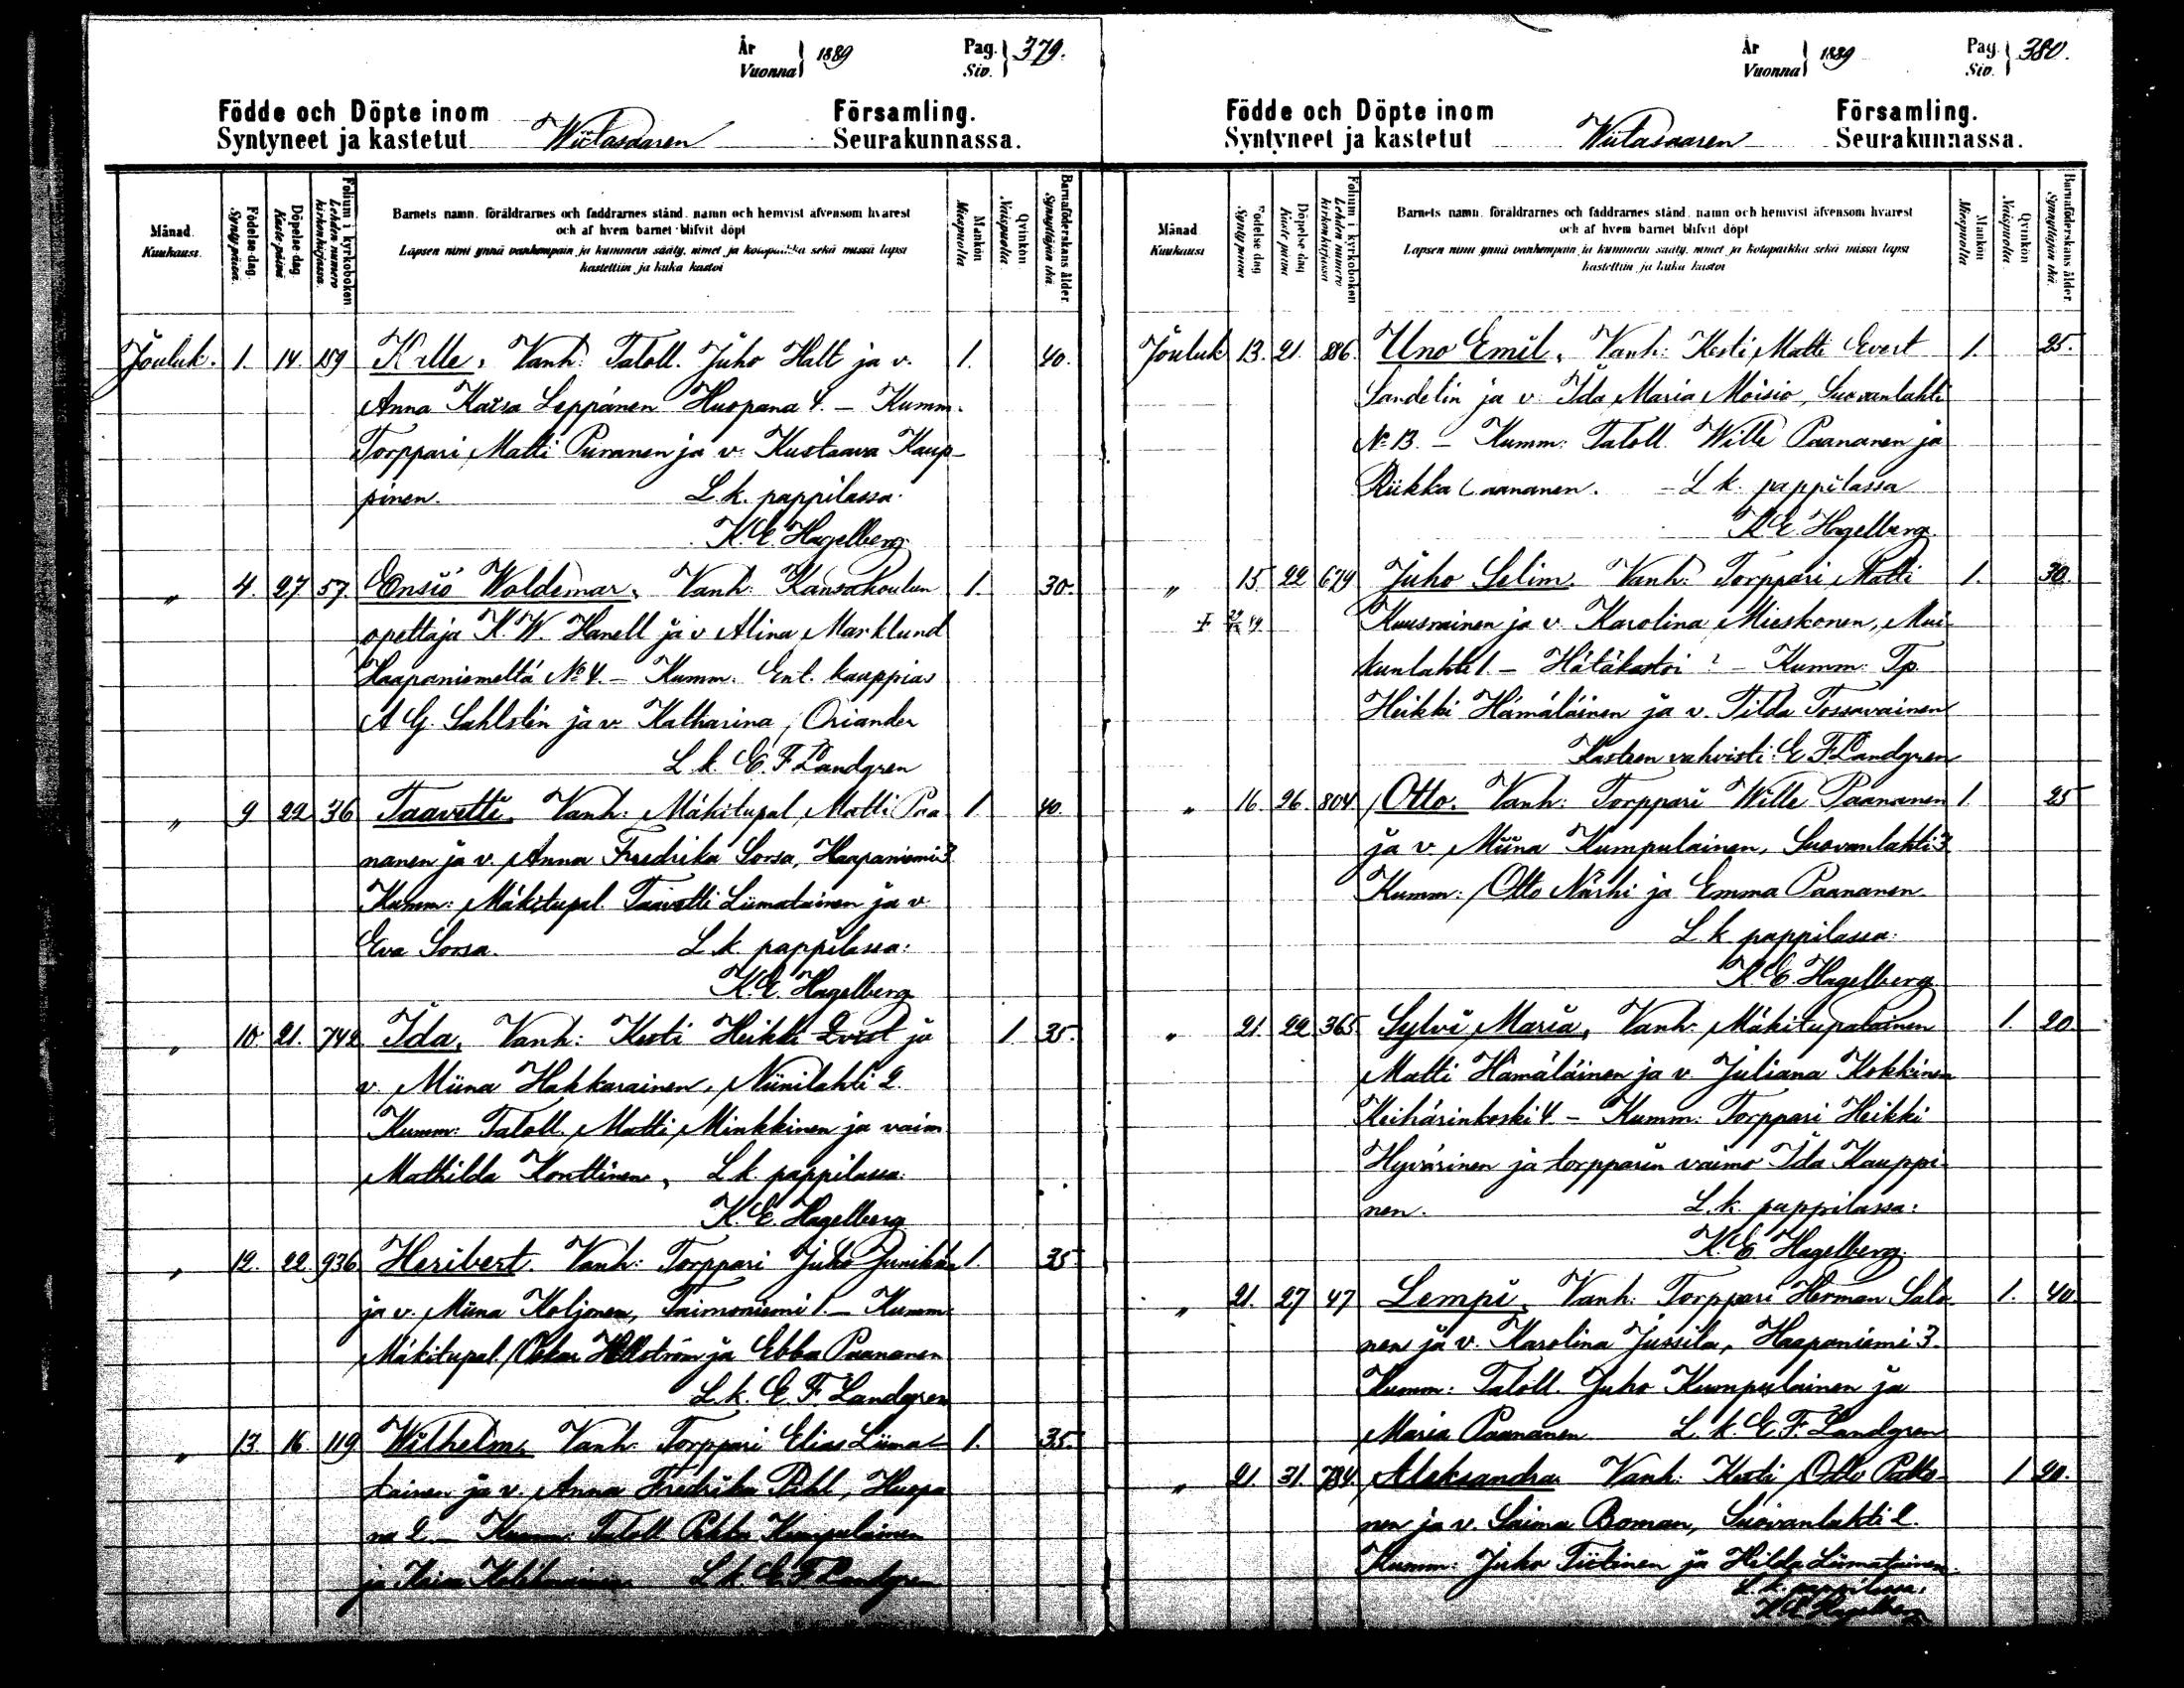 År
Vuonna } 1889
Pag.
Siv. } 379.
Födde och Döpte inom Församling.
Syntyneet ja kastetut Wiitasaaren Seurakunnassa.
Månad.
Kuukausi.
Födelse-dag.
Synty-päivä.
Döpelse-dag
Kaste-päivä
Folium i kyrkoboken
Lehden numero kirkonkirjassa.
Barnets namn, föräldrarnes och faddrarnes stånd, namn och hemvist äfvensom hvarest
och af hvem barnet blifvit döpt
Lapsen nimi ynnä vanhempain ja kummein sääty, nimet ja kotopaikka sekä missä lapsi
kastettiin ja kuka kastoi
Mankön
Miespuolia
Qvinkön
Naispuolia
Barnaföderskans ålder.
Synnyttäjän ikä.
Jouluk. 1. 14. 159 Kalle, Vanh: Taloll. Juho Halt ja v. 1. 40.
Anna Kaisa Leppänen Huopana 4. – Kumm.
Torppari Matti Puranen ja v. Kustaava Kaup-
pinen. L. k. pappilassa.
K. E. Hagelberg.
„ 4. 27 57 Ensio Woldemar, Vanh: Kansakoulun 1. 30.
opettaja K. W. Hanell ja v Alina Marklund
Haapaniemeltä No 4. – Kumm. Ent. kauppias
A G Sahlstén ja v. Katharina Oriander
L. k. E. F Landgren
„ 9 22 36 Taavetti, Vanh: Mäkitupal. Matti Paa 1. 40.
nanen ja v. Anna Fredrika Sorsa, Haapaniemi 3
Kumm: Mäkitupal. Taavetti Liimatainen ja v.
Eva Sorsa. L. k. pappilassa:
K. E. Hagelberg
„ 10. 21. 742 Ida, Vanh: Kesti Heikki Qvist ja 1 35.
v. Miina Hakkarainen, Niinilahti 2.
Kumm: Taloll. Matti Minkkinen ja vaim
Mathilda Konttinen, L. k. pappilassa:
K. E. Hagelberg
„ 12. 22. 936 Heribert. Vanh: Torppari Juho Junikka 1. 35.
ja v. Miina Koljonen, Taimoniemi 1. – Kumm
Mäkitupal. Oskar Hellström ja Ebba Paananen
L. k. E. F. Landgren
„ 13. 16 119 Wilhelm, Vanh: Torppari Elias Liima- 1. 35.
tainen ja v. Anna Fredrika Pihl, Huopa
na 2. – Kumm: Taloll Pekka Kumpulainen
ja Kaisa L. k. E. F Landgren
År
Vuonna } 1889
Pag.
Siv. } 380.
Födde och Döpte inom Församling.
Syntyneet ja kastetut Wiitasaaren Seurakunnassa.
Månad
Kuukausi
Födelse dag
Synty päivä
Döpelse dag
Kaste päivä
Folium i kyrkoboken
Lehden numero kirkonkirjassa
Barnets namn, föräldrarnes och faddrarnes stånd, namn och hemvist äfvensom hvarest
och af hvem barnet blifvit döpt
Lapsen nimi ynnä vanhempain ja kummein sääty, nimet ja kotopaikka sekä missä lapsi
kastettiin ja kuka kastoi
Mankön
Miespuolia
Qvinkön
Naispuolia
Barnaföderskans ålder
Synnyttäjän ikä.
Jouluk 13. 21. 886. Uno Emil, Vanh: Kesti Matti Evert 1. 25.
Sandelin ja v. Ida Maria Moisio, Suovanlahti
No 13. – Kumm: Taloll. Wille Paananen ja
Riikka Paananen. – L k. pappilassa
K. E. Hagelberg.
„ 15. 22 679 Juho Selim. Vanh: Torppari Matti 1. 30.
Kuusmainen ja v. Karolina Mieskonen, Mui-
kunlahti 1. – Hätäkastoi ? – Kumm: Tp.
Heikki Hämäläinen ja v. Tilda Tossavainen
Kasteen vahvisti: E F Landgren
„ 16. 26. 804 Otto. Vanh: Torppari Wille Paananen 1. 25
ja v Miina Kumpulainen, Suovanlahti 3
Kumm: Otto Närhi ja Emma Paananen
L. k pappilassa:
K. E. Hagelberg
„ 21. 22 365 Sylvi Maria, Vanh: Mäkitupalainen 1. 20
Matti Hämäläinen ja v. Juliana Kokkinen
Keihärinkoski 4. – Kumm: Torppari Heikki
Hyvärinen ja torpparin vaimo Ida Kauppi-
nen. L. k. pappilassa:
K. E. Hagelberg.
„ 21. 27 47 Lempi, Vanh: Torppari Herman Salo- 1. 40.
nen ja v. Karolina Jussila, Haapaniemi 3.
Kumm: Taloll. Juho Kumpulainen ja
Maria Paananen L. k. E. F. Landgren
„ 21. 31. 784. Aleksandra Vanh: Kesti Otto Patto- 1 20.
nen ja v. Saima Boman, Suovanlahti 2.
Kumm: Juho Tiitinen ja Hilda Liimatainen.
L. k. pappilassa.
K E Hagelberg